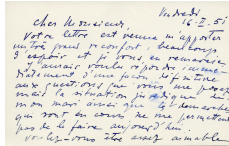 Vendredi
16-II-51
cher Monsieur
Votre lettre est venue m'apporter
un très grand réconfort, beaucoup
d'espoir et je vous en remercie
J'aurais voulu répondre
d'une façon définitive
aux questions que vous me posez
mais la situation juridique de
mon mari ainsi que les démarches
qui sont en cours ne me permettent
pas de le faire aujourd'hui
voulez-vous être assez aimable